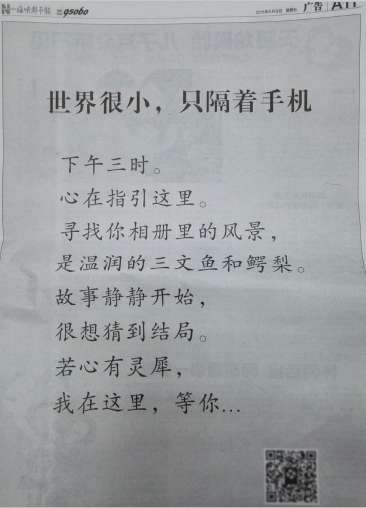 gsobo
广告
世界很小，只隔着手机
下午三时。
心在指引这里。
寻找你相册里的风景，
是温润的三文鱼和鳄梨。
故事静静开始，
很想猜到结局。
若心有灵犀，
我在这里，等你...